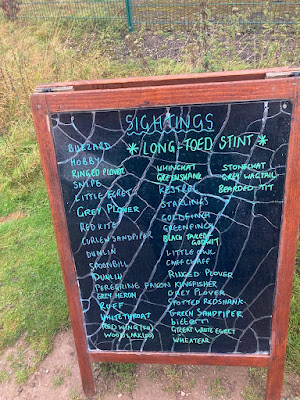 SIGHTINGS
* LONG-TOED STINT *
BUZZARD
HOBBY
RINGED PLOVER
SNIPE
LITTLE EGRET
GREY PLOVER
RED KITE
CURLEW SANDPIPER
DUNLIN
SPOONBILL
DUNLIN
PEREGRINE FALCON
GREY HERON
RUFF
WHITETHROAT
REDWING (50)
WOODLARK (50)
WHINCHAT
GREENSHANK
KESTREL
STARLINGS
GOLDFINCH
GREENFINCH
BLACK TAILED
GODWIT
LITTLE OWL
CHIFF CHAFF
RINGED PLOVER
KINGFISHER
GREY PLOVER
SPOTTED REDSHANK
GREEN SANDPIPER
bittern
GREAT WHITE EGRET
WHEATEAR
STONECHAT
GREY WAGTAIL
BEARDED TIT